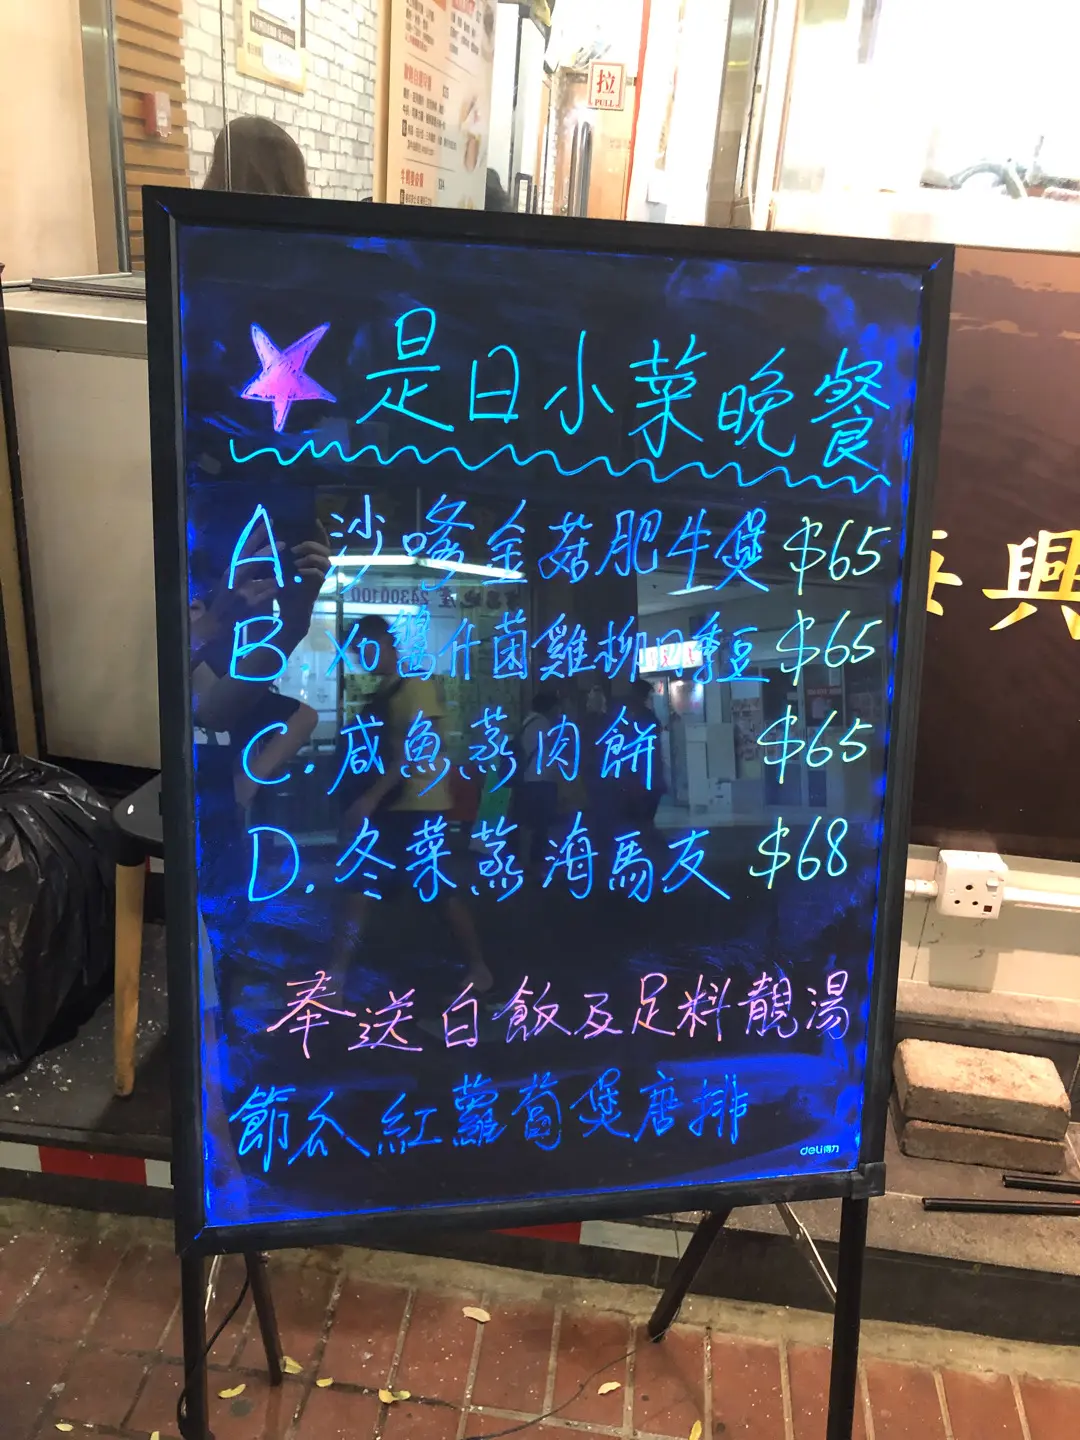 拉
PULL
是日小菜晚餐
A. 沙嗲金菇肥牛煲 $65
B. XO醬什菌雞柳四季豆 $65
C. 咸魚蒸肉餅 $65
D. 冬菜蒸海馬友 $68
奉送白飯及足料靚湯
節瓜紅蘿蔔煲唐排
deli得力
興